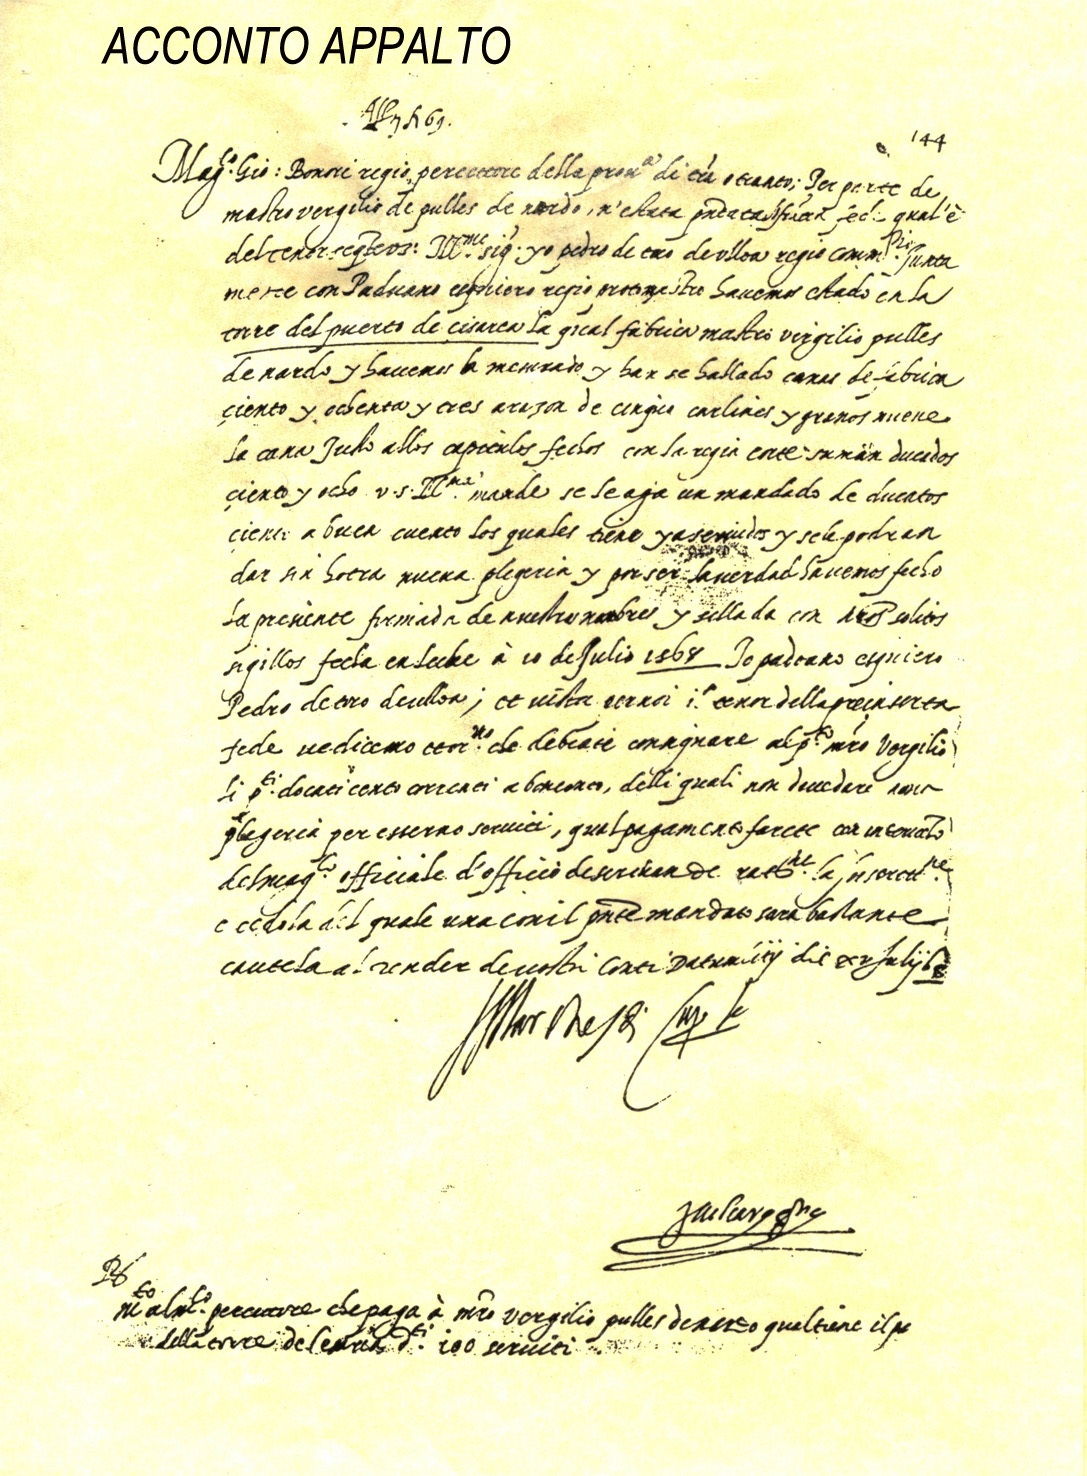 ACCONTO APPALTO
144
Mag.co Gio: Bonori regio percettore della prou.a di tra otranto; Per parte de
mastro vergilio de pulles de nardo, n'e stata fed. qual'è
del tenor seq.te vz: Ill.me sig.r yo pedro de oro de ulloa regio comm. junta
mente con Paduano regio protomastro hauemos estado en la
torre del puerto de cisarea la qual fabrica mastro virgilio pulles
de nardo y hauemos la mesurado y han se hallado canas de fabrica
ciento y ochenta y tres a razon de cinquo carlines y granos nueue
la cana Justo allos capitulos fechos con la regia corte suman ducados
ciento y ocho v.s. Ill.me mande se le aga un mandado de ducatos
ciento a buen cuento los quales tiene ya seruidos y se le podran
dar sin hotra nueua plegeria y por ser la uerdad hauemos fecho
la presente firmada de nuestro nombres y sellada con nros solitos
sigillos fecha en leche à 10 de Julio 1568 Io paduano
Pedro de oro de ulloa; et uista per noi i.l tenor della preinserta
fede ue dicemo et or.mo che debiate consignare al p.to mro Vergilio
li p.ti docati cento correnti a bonconto, delli quali non
plegeria per esserno seruiti, qual pagamento farete con interuento
del mag.co officiale d'officio de scriuan de rat.ne la inserett.ne
e cedola del quale una con il pnte mandato sarà bastante
cautela al render de uostri conti Datum
mto al m.co percettore che paga à mro vergilio pulles de nardo qual tiene il p
della torre de d.ti 100 seruiti